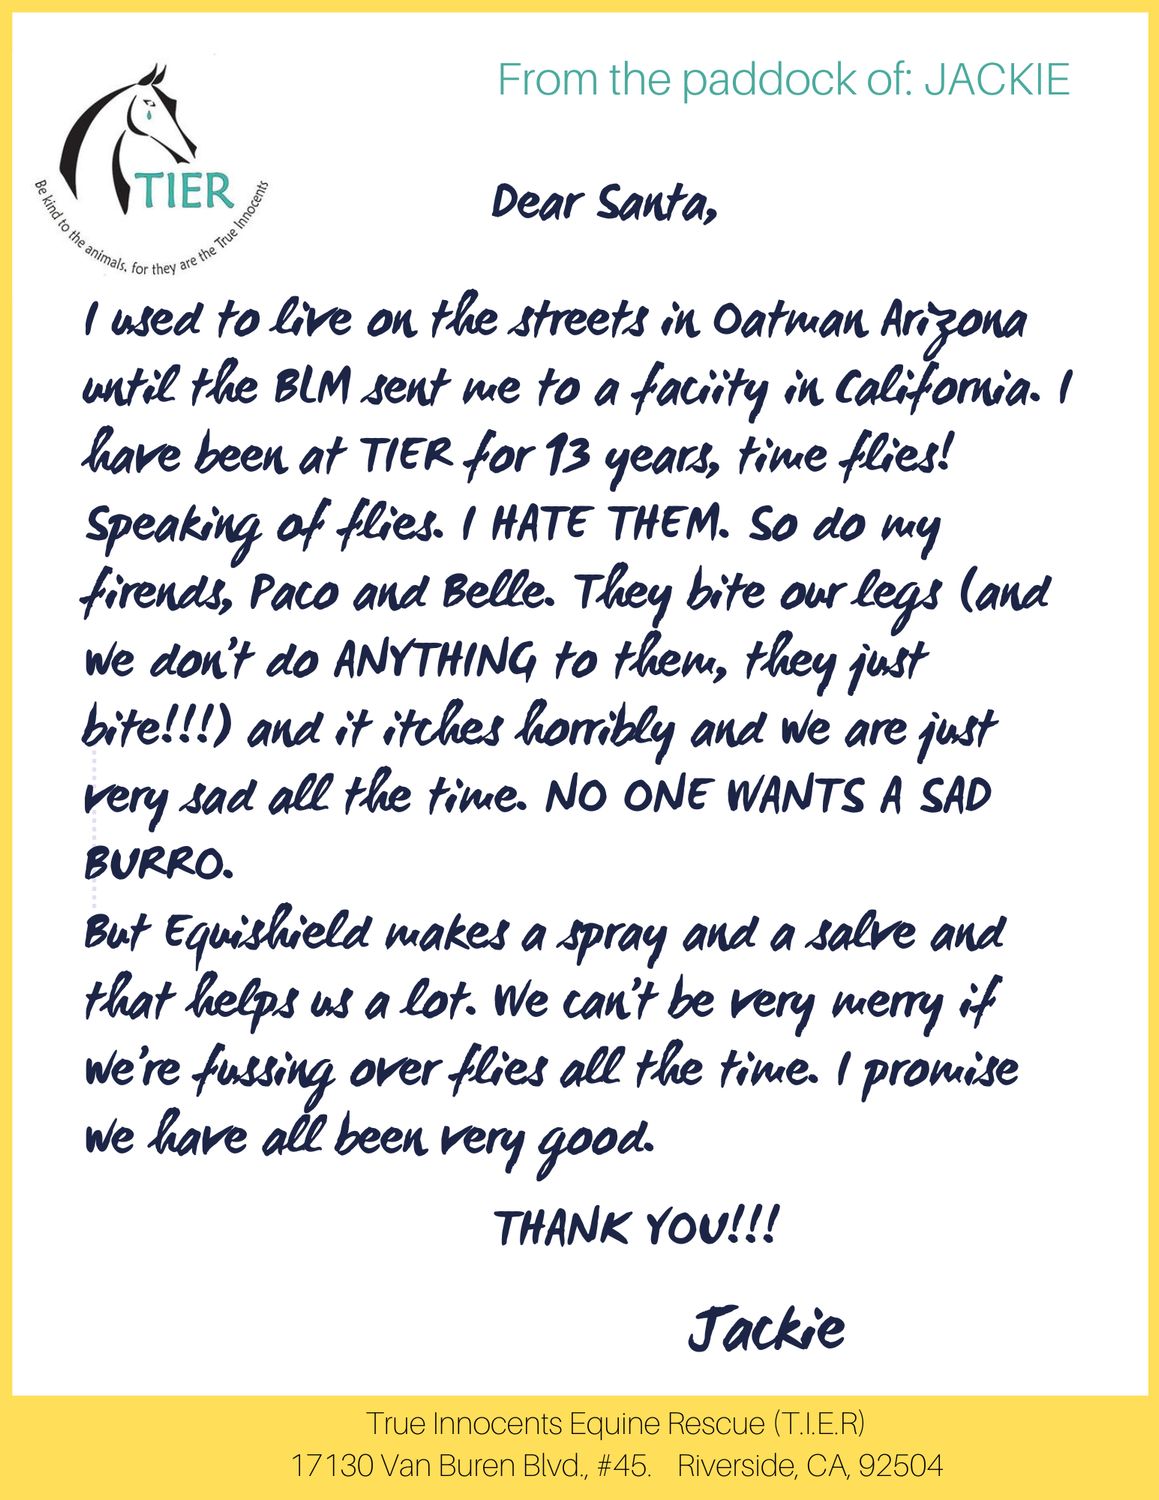 From the paddock of: JACKIE
TIER
Be kind to the animals, for they are the True Innocents
Dear Santa,
I used to live on the streets in Oatman Arizona
until the BLM sent me to a faciity in California. I
have been at TIER for 13 years, time flies!
Speaking of flies. I HATE THEM. So do my
firends, Paco and Belle. They bite our legs (and
we don't do ANYTHING to them, they just
bite!!!) and it itches horribly and we are just
very sad all the time. NO ONE WANTS A SAD
BURRO.
But Equishield makes a spray and a salve and
that helps us a lot. We can't be very merry if
we're fussing over flies all the time. I promise
we have all been very good.
THANK YOU!!!
Jackie
True Innocents Equine Rescue (T.I.E.R)
17130 Van Buren Blvd., #45. Riverside, CA, 92504